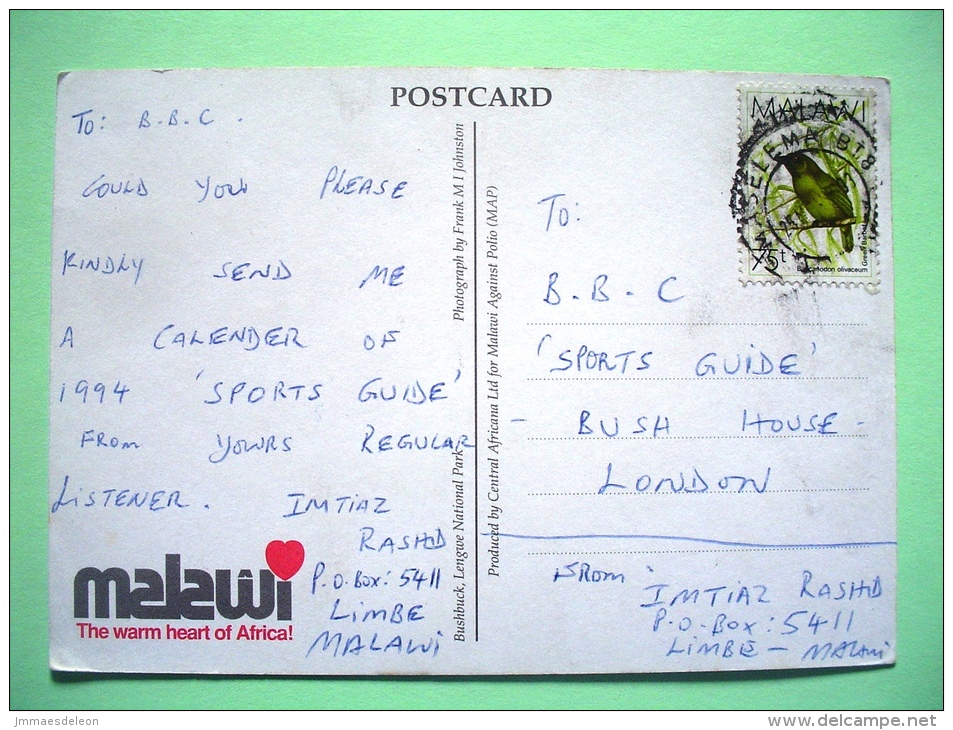 POSTCARD
To: B.B.C.
COULD YOU PLEASE
KINDLY SEND ME
A CALENDER OF
1994 'SPORTS GUIDE'
FROM YOURS REGULAR
LISTENER. IMTIAZ
RASHID
P.O.Box: 5411
LIMBE
MALAWI
malawi
The warm heart of Africa!
Bushbuck, Lengwe National Park. Photograph by Frank M I Johnston
Produced by Central Africana Ltd for Malawi Against Polio (MAP)
MALAWI
75t
Green Barbet
olivaceum
To:
B.B.C
'SPORTS GUIDE'
- BUSH HOUSE -
LONDON
FROM:
IMTIAZ RASHID
P.O.BOX: 5411
LIMBE - MALAWI
jmmaesdeleon
www.delcampe.net